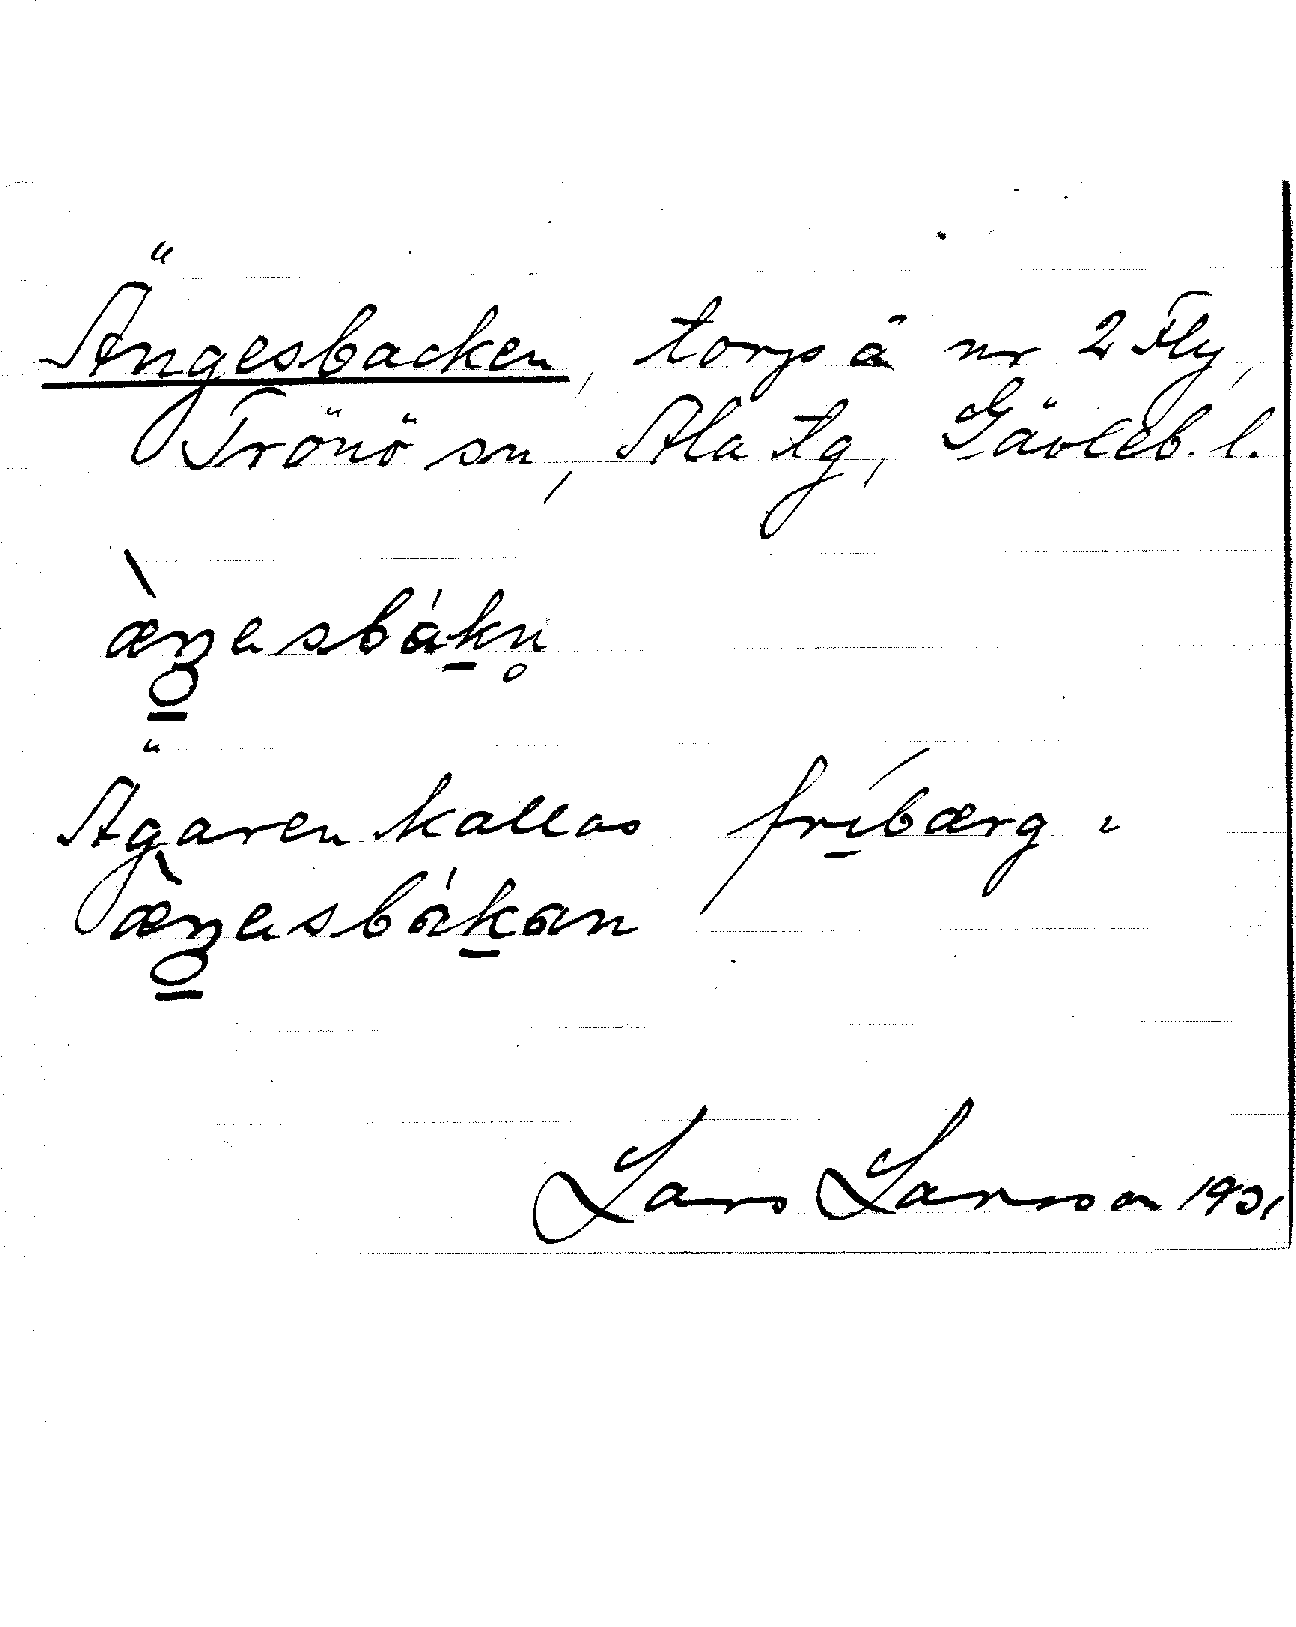 Ängesbacken, torp å nr 2 Fly,
Trönö sn, Ala tg, Gävleb. l.
æ̀ŋesbákn̥
Ägaren kallas fríbærg i
æ̀ŋesbákan
Lars Larsson 1931